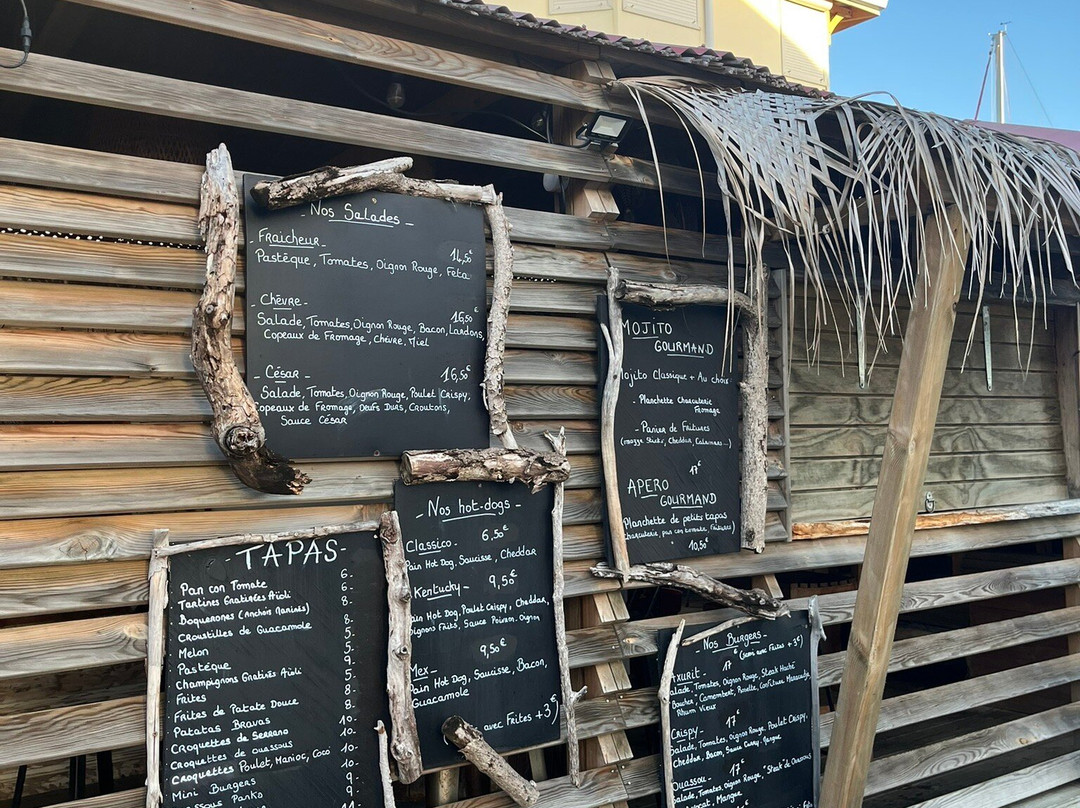 - Nos Salades -
- Fraicheur -
14,50€
Pastèque, Tomates, Oignon Rouge, Feta
- Chèvre -
16,50€
Salade, Tomates, Oignon Rouge, Bacon, Lardons,
Copeaux de Fromage, Chèvre, Miel
- César -
16,50€
Salade, Tomates, Oignon Rouge, Poulet Crispy,
Copeaux de Fromage, Oeufs Durs, Croutons,
Sauce César
MOJITO
GOURMAND
Mojito Classique + Au choix
- Planchette Charcuterie
Fromage
- Panier de Fritures
(mozza Sticks, Cheddar, Calamares...)
17€
APERO
GOURMAND
Planchette de petits tapas
Charcuterie, pan con tomate, Fritures)
10,50€
- Nos hot-dogs -
Classico - 6,50€
Pain Hot Dog, Saucisse, Cheddar
Kentucky - 9,50€
Pain Hot Dog, Poulet Crispy, Cheddar,
Oignons Frits, Sauce Poivron, Oignon
Mex - 9,50€
Pain Hot Dog, Saucisse, Bacon,
Guacamole
avec Frites +3€
- TAPAS -
Pan con Tomate 6.
Tartines Gratinées Aïoli 6.
Boquerones (Anchois Marinés) 8.
Croustilles de Guacamole 8.
Melon 5.
Pastèque 5.
Champignons Gratinés Aïoli 9.
Frites 5.
Frites de Patate Douce 8.
Patatas Bravas 8.
Croquettes de Serrano 10.
Croquettes de Ouassous 10.
Croquettes Poulet, Manioc, Coco 10.
Mini Burgers 9.
Ouassous Panko 11
- Nos Burgers -
17€ (servi avec Frites +3€)
Axurit -
Salade, Tomates, Oignon Rouge, Steak Haché
Boucher, Camembert, Rosette, Confiture Maracudja,
Rhum Vieux
Crispy - 17€
Salade, Tomates, Oignon Rouge, Poulet Crispy,
Cheddar, Bacon, Sauce Curry, Mangue
Ouassou - 17€
Salade, Tomates, Oignon Rouge, "Steak" de Ouassous
Avocat, Mangue